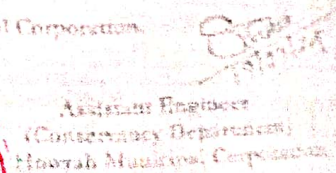 l Corporation
Assistant Engineer
(Conservancy Department)
Howrah Municipal Corporation